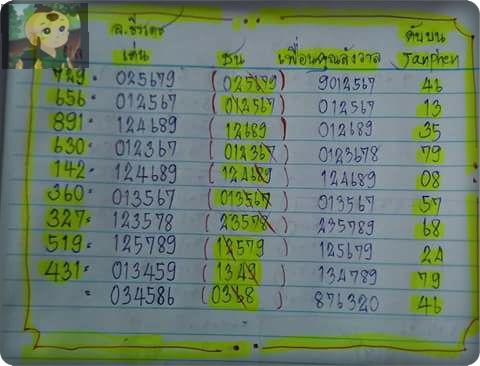 อ.ธีรเดช ดับบน
เด่น ชน เพื่อนคุณสังวาล Tanphen
729= 025679 (025679) 9012567 46
656= 012567 (012567) 012567 13
891= 124689 (12689) 012689 35
630= 012367 (012367) 0123678 79
142= 124689 (124689) 124689 08
360= 013567 (013567) 013567 57
327= 123578 (23578) 235789 68
519= 125789 (12579) 125679 24
431= 013459 (1349) 134789 79
= 034586 (0368) 876320 46